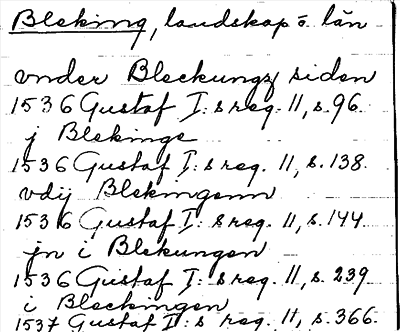 Bleking, landskap o. län
vnder Bleckungz siden
1536 Gustaf I: s reg. 11, s. 96.
j Blekinge
1536 Gustaf I: s reg. 11, s. 138.
vdij Blekingenn
1536 Gustaf I: s reg. 11, s. 144
jn i Blekungen
1536 Gustaf I: s reg. 11, s. 239
i Bleckingen
1537 Gustaf I: s reg. 11, s. 366.